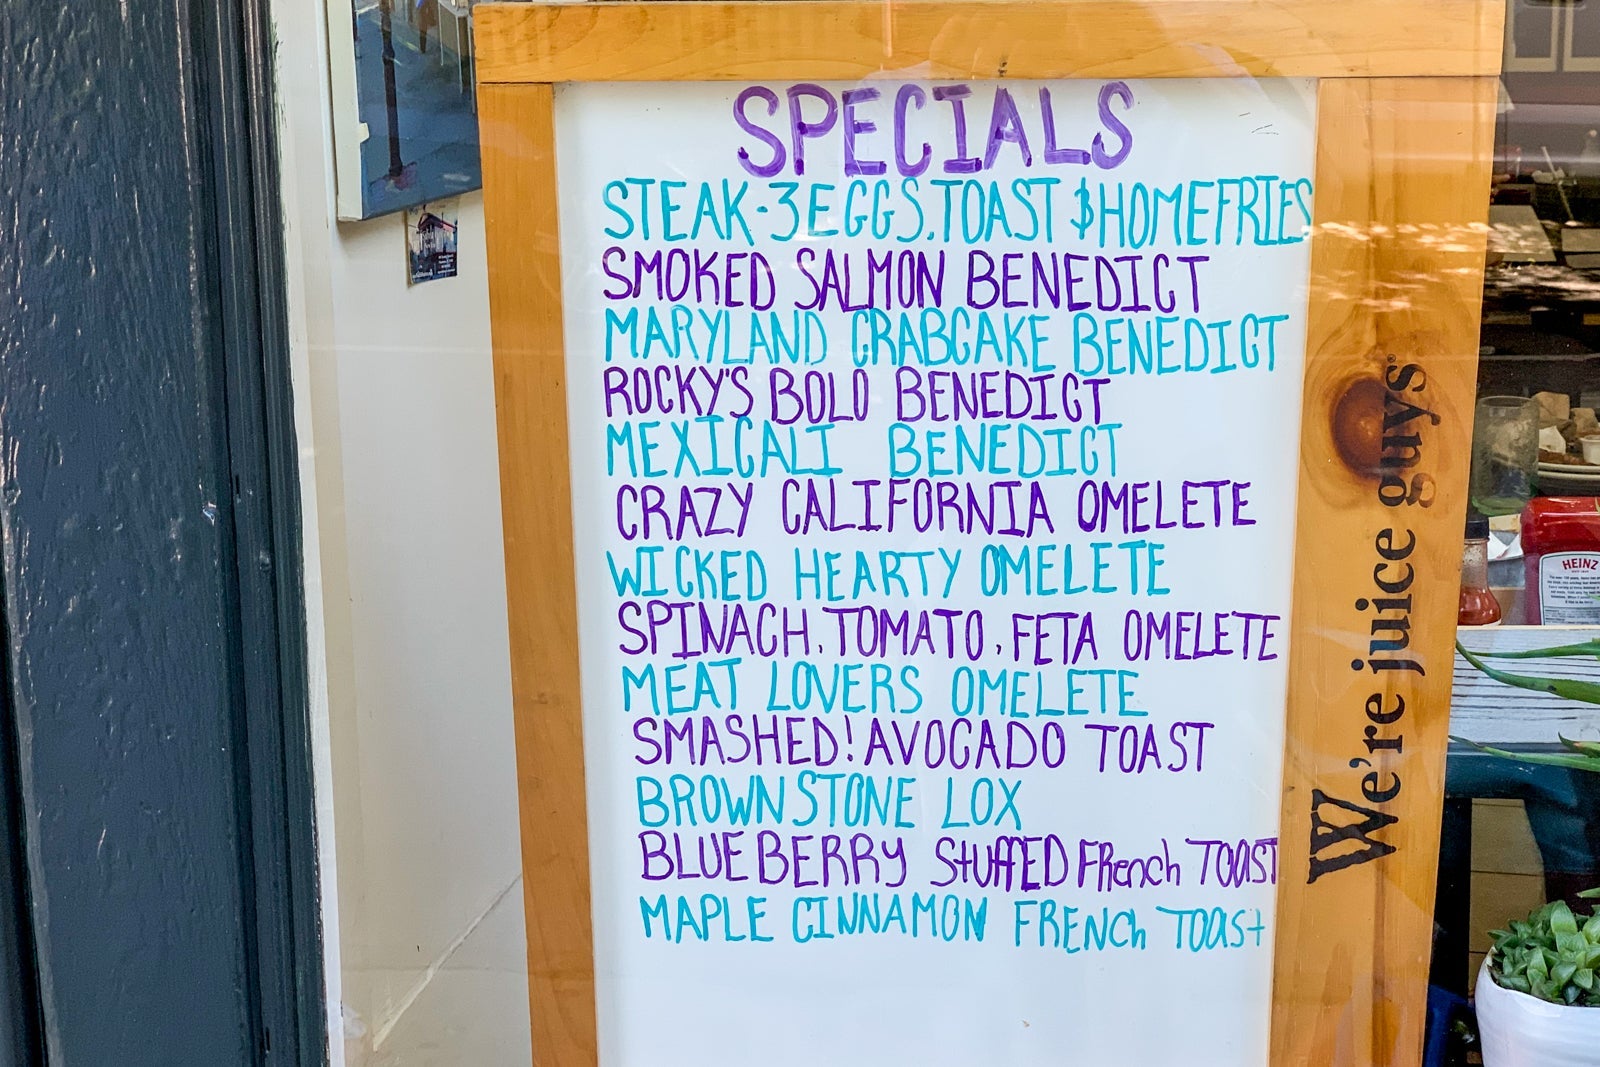 SPECIALS
STEAK-3EGGS,TOAST $HOMEFRIES
SMOKED SALMON BENEDICT
MARYLAND CRABCAKE BENEDICT
ROCKY'S BOLO BENEDICT
MEXICALI BENEDICT
CRAZY CALIFORNIA OMELETE
WICKED HEARTY OMELETE
SPINACH, TOMATO, FETA OMELETE
MEAT LOVERS OMELETE
SMASHED! AVOCADO TOAST
BROWNSTONE LOX
BLUEBERRY StUffED FRench TOaST
MAPLE CINNAMON FRENCh TOast
We're juice guys®
HEINZ